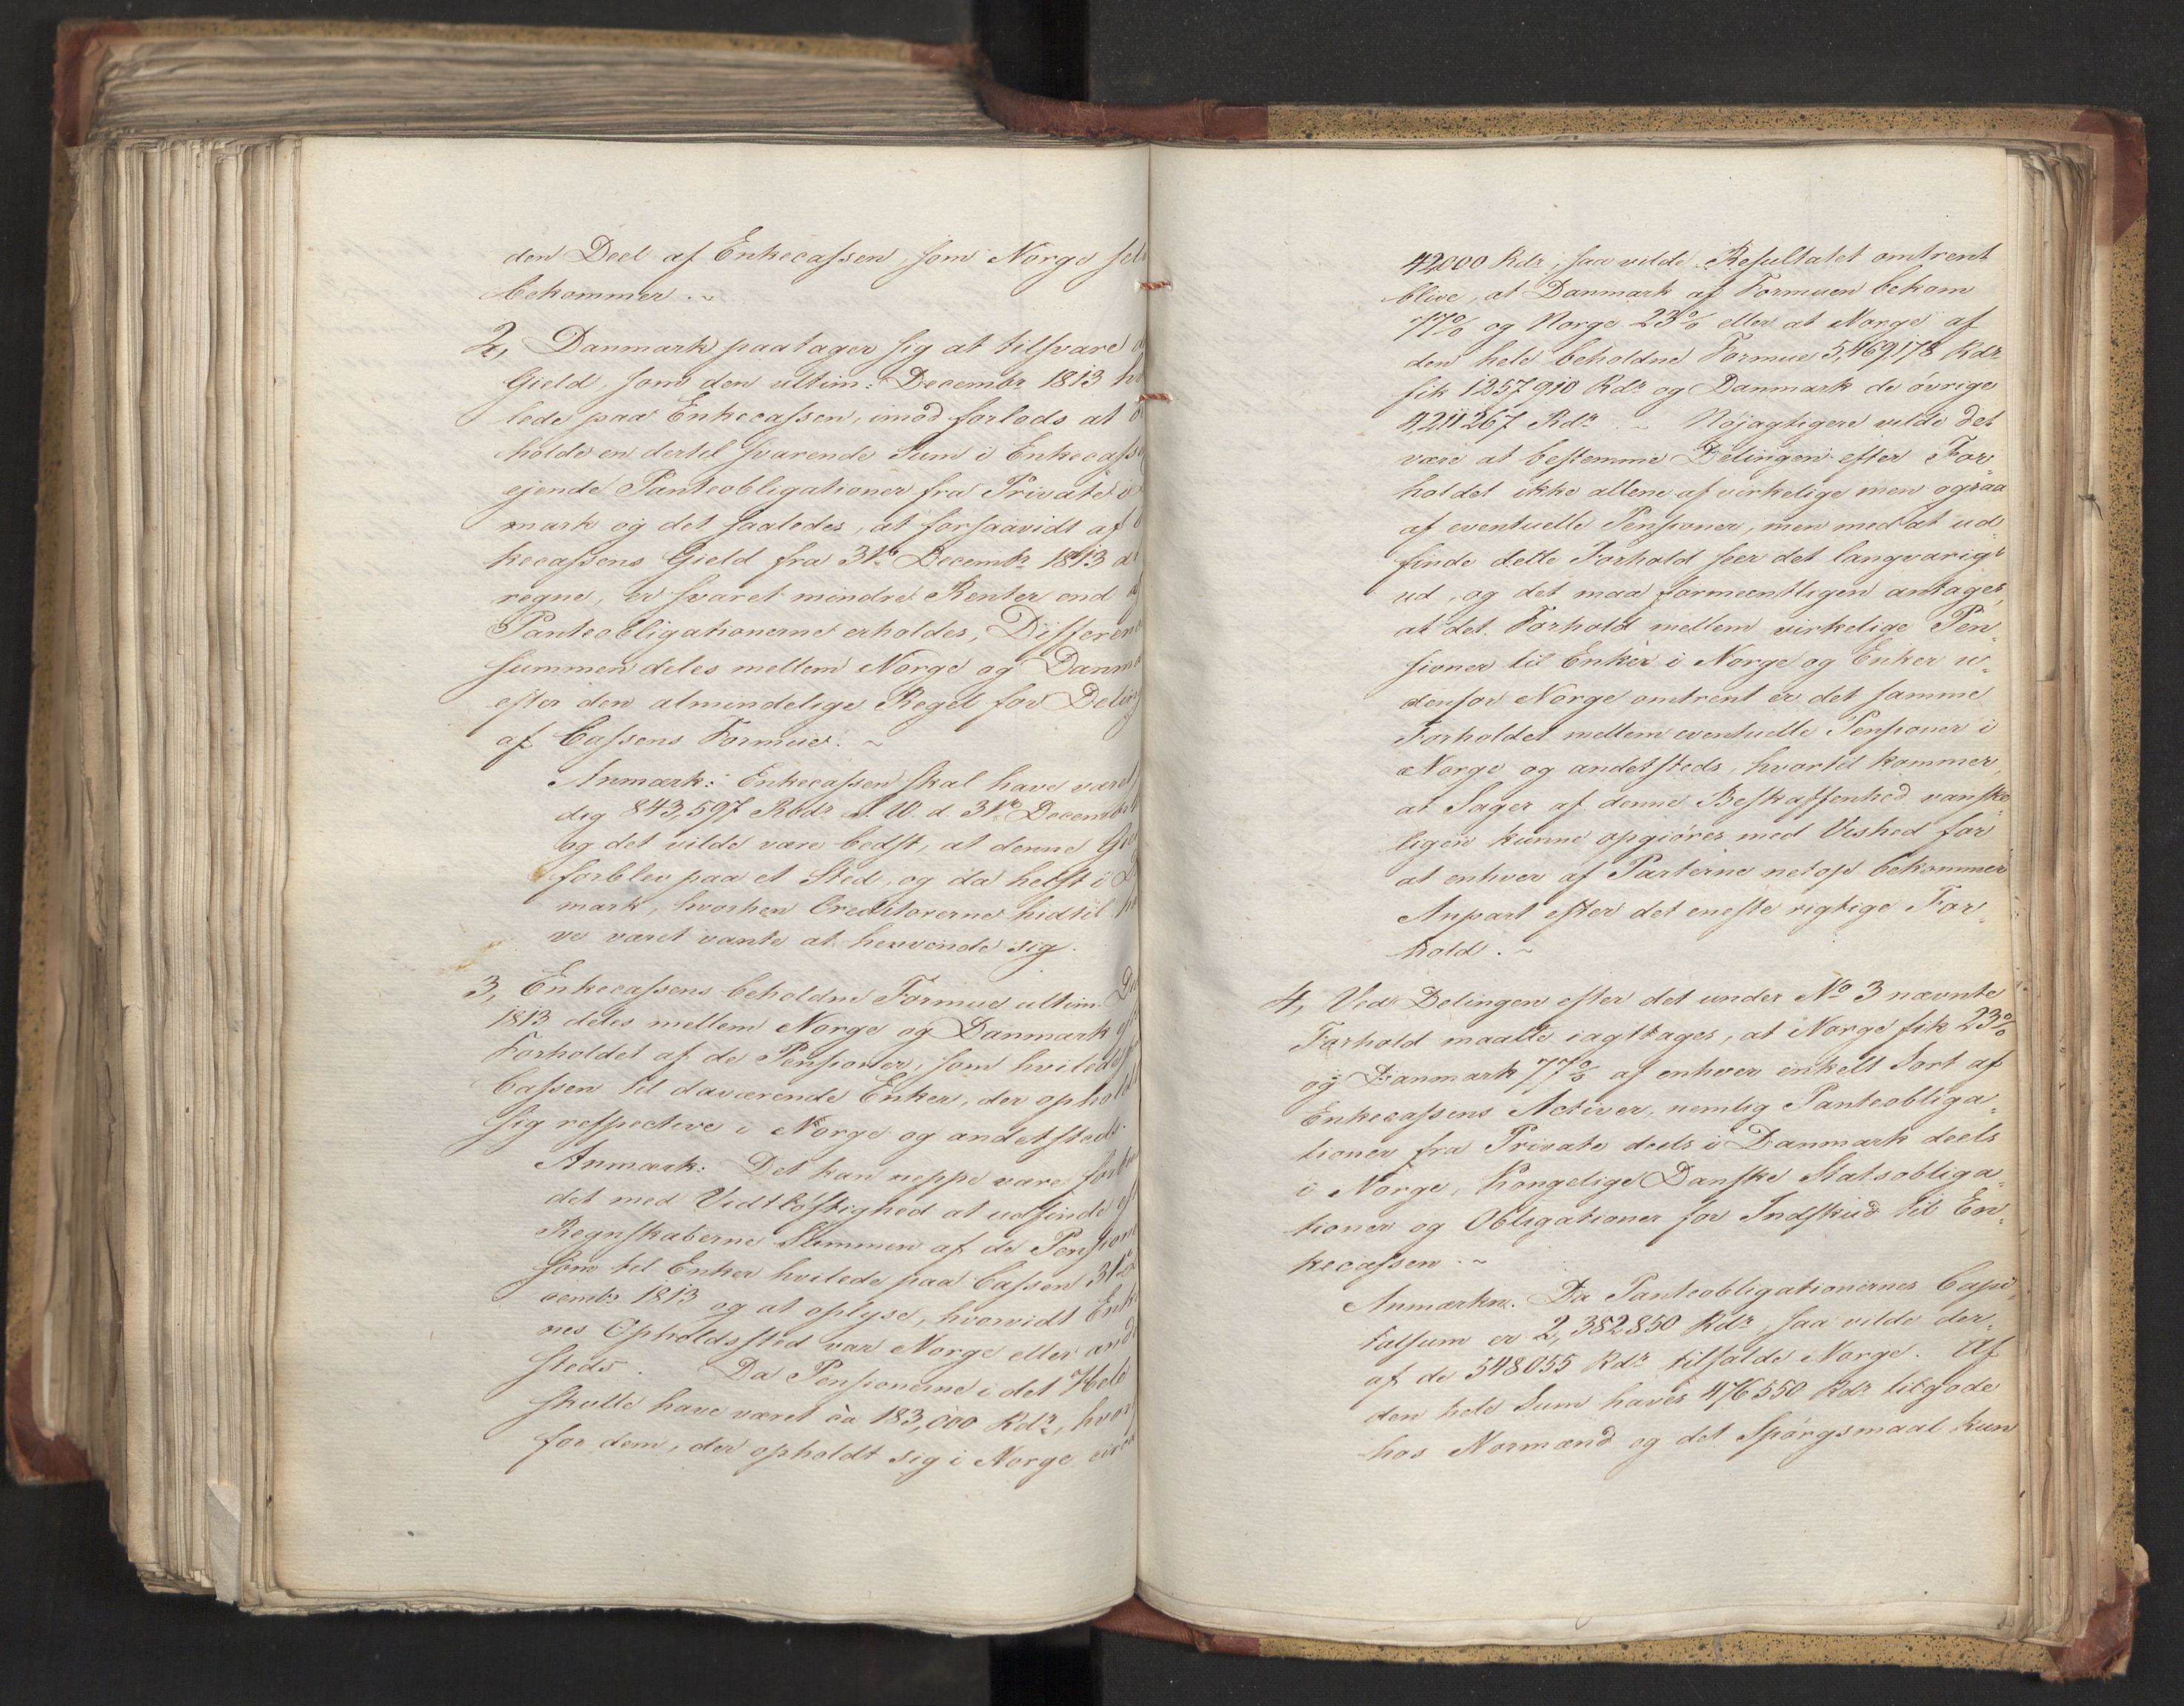 den Deel af Enkecassen, som Norge selv
bekommer. ~
2, Danmark paatager sig at tilsvare
Gield, som den ultim: Decembr 1813
lede paa Enkecassen, imod forlods at
holde en dertil svarende Sum i Enkecass
ejende Panteobligationer fra Private i
mark og det saaledes, at forsaavidt af
kecassens Gield fra 31te Decembr 1813
regne, er svaret mindre Renter end
Panteobligationerne erholdes, Differenc
summen deles mellem Norge og Danma
efter den almindelige Regel for Deling
af Cassens Formue. ~
Anmærk: Enkecassen skal have været
dig 843,597 Rbdr S. V. d. 31te Decembr
og det vilde være bedst, at denne Gie
forblev paa et Sted, og da helst i D
mark, hvorhen Creditorerne hidtil ha
ve været vante at henvende sig.
3, Enkecassens beholdne Formue ultim. De
1813 deles mellem Norge og Danmark eft
Forholdet af de Pensioner, som hvilede
Cassen til daværende Enker, der opholdt
sig respective i Norge og andetsteds.
Anmærk: Det kan neppe være forbun
det med Vidtløftighed at udfinde ef
Regnskaberne Summen af de Pension
som til Enker hvilede paa Cassen 31te
cembr 1813 og at oplyse, hvorvidt Enke
nes Opholdssted var Norge eller andet
steds. Da Pensionerne i det Hele
skulle have været ca 183,000 Rdr, hvor
for dem, der opholdt sig i Norge circa
42000 Rdr, saa vilde Resultatet omtrent
blive, at Danmark af Formuen bekom
77% og Norge 23% eller at Norge af
den hele beholdne Formue 5,469,178 Rdr
fik 1257910 Rdr og Danmark de øvrige
4,211267 Rdr ~ Nøjagtigere vilde det
være at bestemme Delingen efter For¬
holdet ikke allene af virkelige men ogsaa
af eventuelle Pensioner, men med at ud¬
finde dette Forhold seer det langvarigt
ud, og det maa formeentligen antages,
at det Forhold mellem virkelige Pen¬
sioner til Enker i Norge og Enker u¬
denfor Norge omtrent er det samme
Forholdet mellem eventuelle Pensioner i
Norge og andetsteds, hvortil kommer,
at Sager af denne Beskaffenhed vanske
ligen kunne opgiøres med Vished for
at enhver af Parterne netop bekommer
Anpart efter det eneste rigtige For¬
hold. ~
4, Ved Delingen efter det under No 3 nævnte
Forhold maatte iagttages, at Norge fik 23%
og Danmark 77% af enhver enkelt Sort af
Enkecassens Activer, nemlig Panteobliga¬
tioner fra Private deels i Danmark deels
i Norge, Kongelige Danske Statsobliga¬
tioner og Obligationer for Indskud til En¬
kecassen. ~
Anmærkn. Da Panteobligationernes Capi¬
talsum er 2,382850 Rdr, saa vilde der¬
af de 548055 Rdr tilfalde Norge. Af
den hele Sum haves 476550 Rdr tilgode
hos Normænd og det Spørgsmaal kun